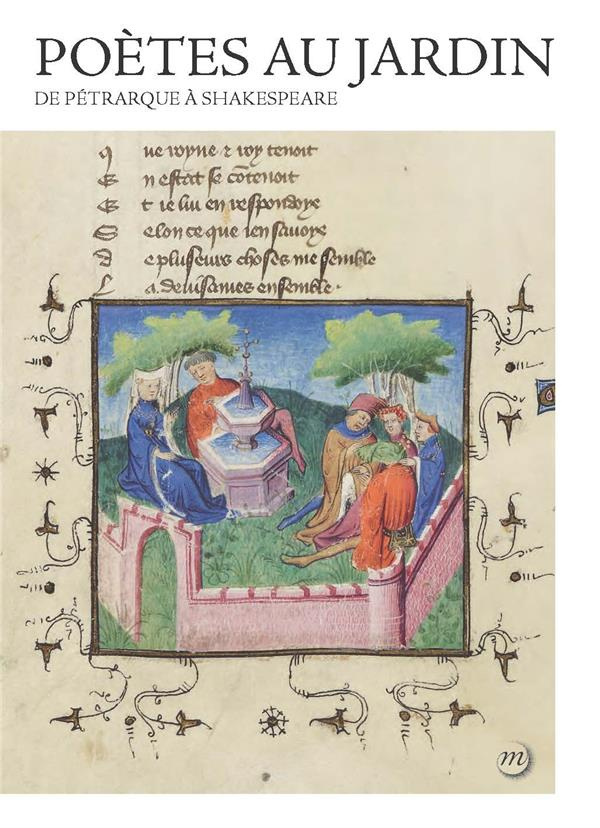 POÈTES AU JARDIN
DE PÉTRARQUE À SHAKESPEARE
q ue royne & roy tenoit
E n estat se cõtenoit
E t ie lui en respondoye
S elon ce que ien savoye
d e pluseurs choses me semble
L a. deuisames ensemble.
m